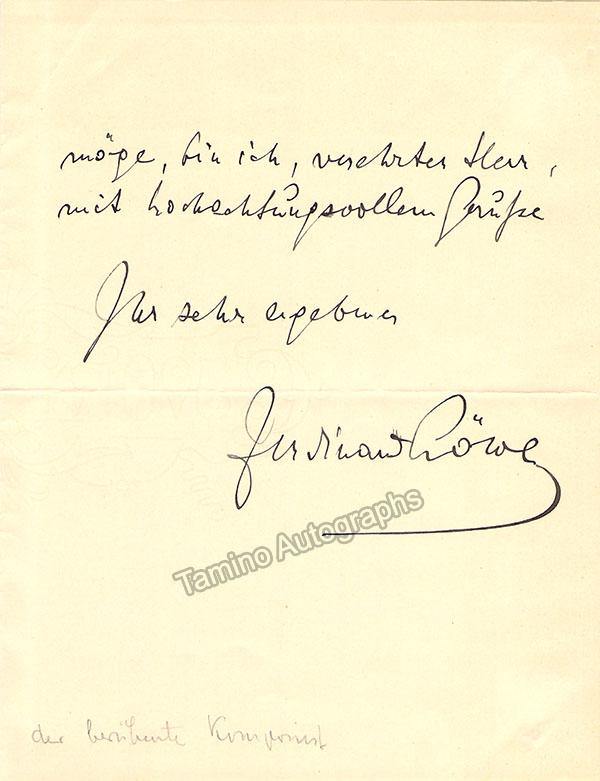 möge, bin ich, verehrter Herr,
mit hochachtungsvollem Gruße
Ihr sehr ergebener
Ferdinand Löwe
Tamino Autographs
der berühmte Komponist